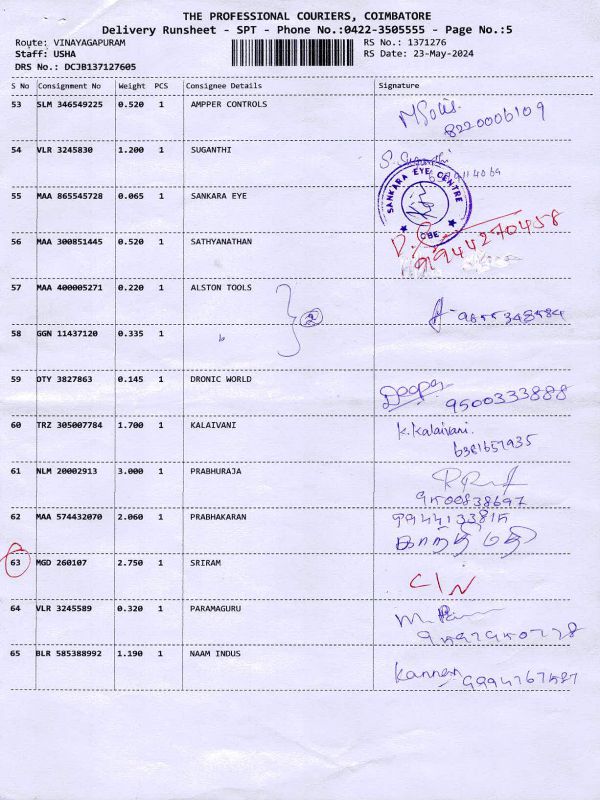 THE PROFESSIONAL COURIERS, COIMBATORE
Delivery Runsheet - SPT - Phone No.:0422-3505555 - Page No.:5
Route: VINAYAGAPURAM RS No.: 1371276
Staff: USHA RS Date: 23-May-2024
DRS No.: DCJB137127605
S No Consignment No Weight PCS Consignee Details Signature
53 SLM 346549225 0.520 1 AMPPER CONTROLS
8220006109
54 VLR 3245830 1.200 1 SUGANTHI S. Suganthi
55 MAA 865545728 0.065 1 SANKARA EYE SANKARA EYE CENTRE
CBE
56 MAA 300851445 0.520 1 SATHYANATHAN 9944270458
57 MAA 400005271 0.220 1 ALSTON TOOLS
2
58 GGN 11437120 0.335 1
59 OTY 3827863 0.145 1 DRONIC WORLD Deepa
9500333888
60 TRZ 305007784 1.700 1 KALAIVANI K. Kalaivani.
6381657935
61 NLM 20002913 3.000 1 PRABHURAJA
9500838697
62 MAA 574432070 2.060 1 PRABHAKARAN 9944133815
63 MGD 260107 2.750 1 SRIRAM C/N
64 VLR 3245589 0.320 1 PARAMAGURU
65 BLR 585388992 1.190 1 NAAM INDUS Kannan
9994767587